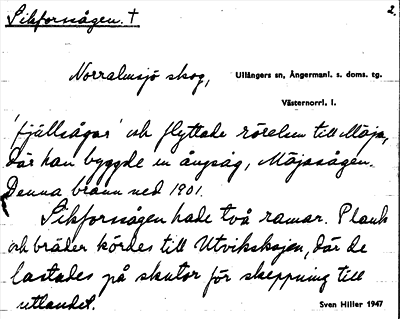 Sikforssågen. † 2.
Norralmsjö skog, Ullångers sn, Ångermanl. s. doms. tg.
Västernorrl. l.
'fjällsågar' och flyttade rörelsen till Mäja,
där han byggde en ångsåg, Mäjasågen.
Denna brann ned 1901.
Sikforssågen hade två ramar. Plank
och bräder kördes till Utvikskajen, där de
lastades på skutor för skeppning till
utlandet. Sven Hiller 1947